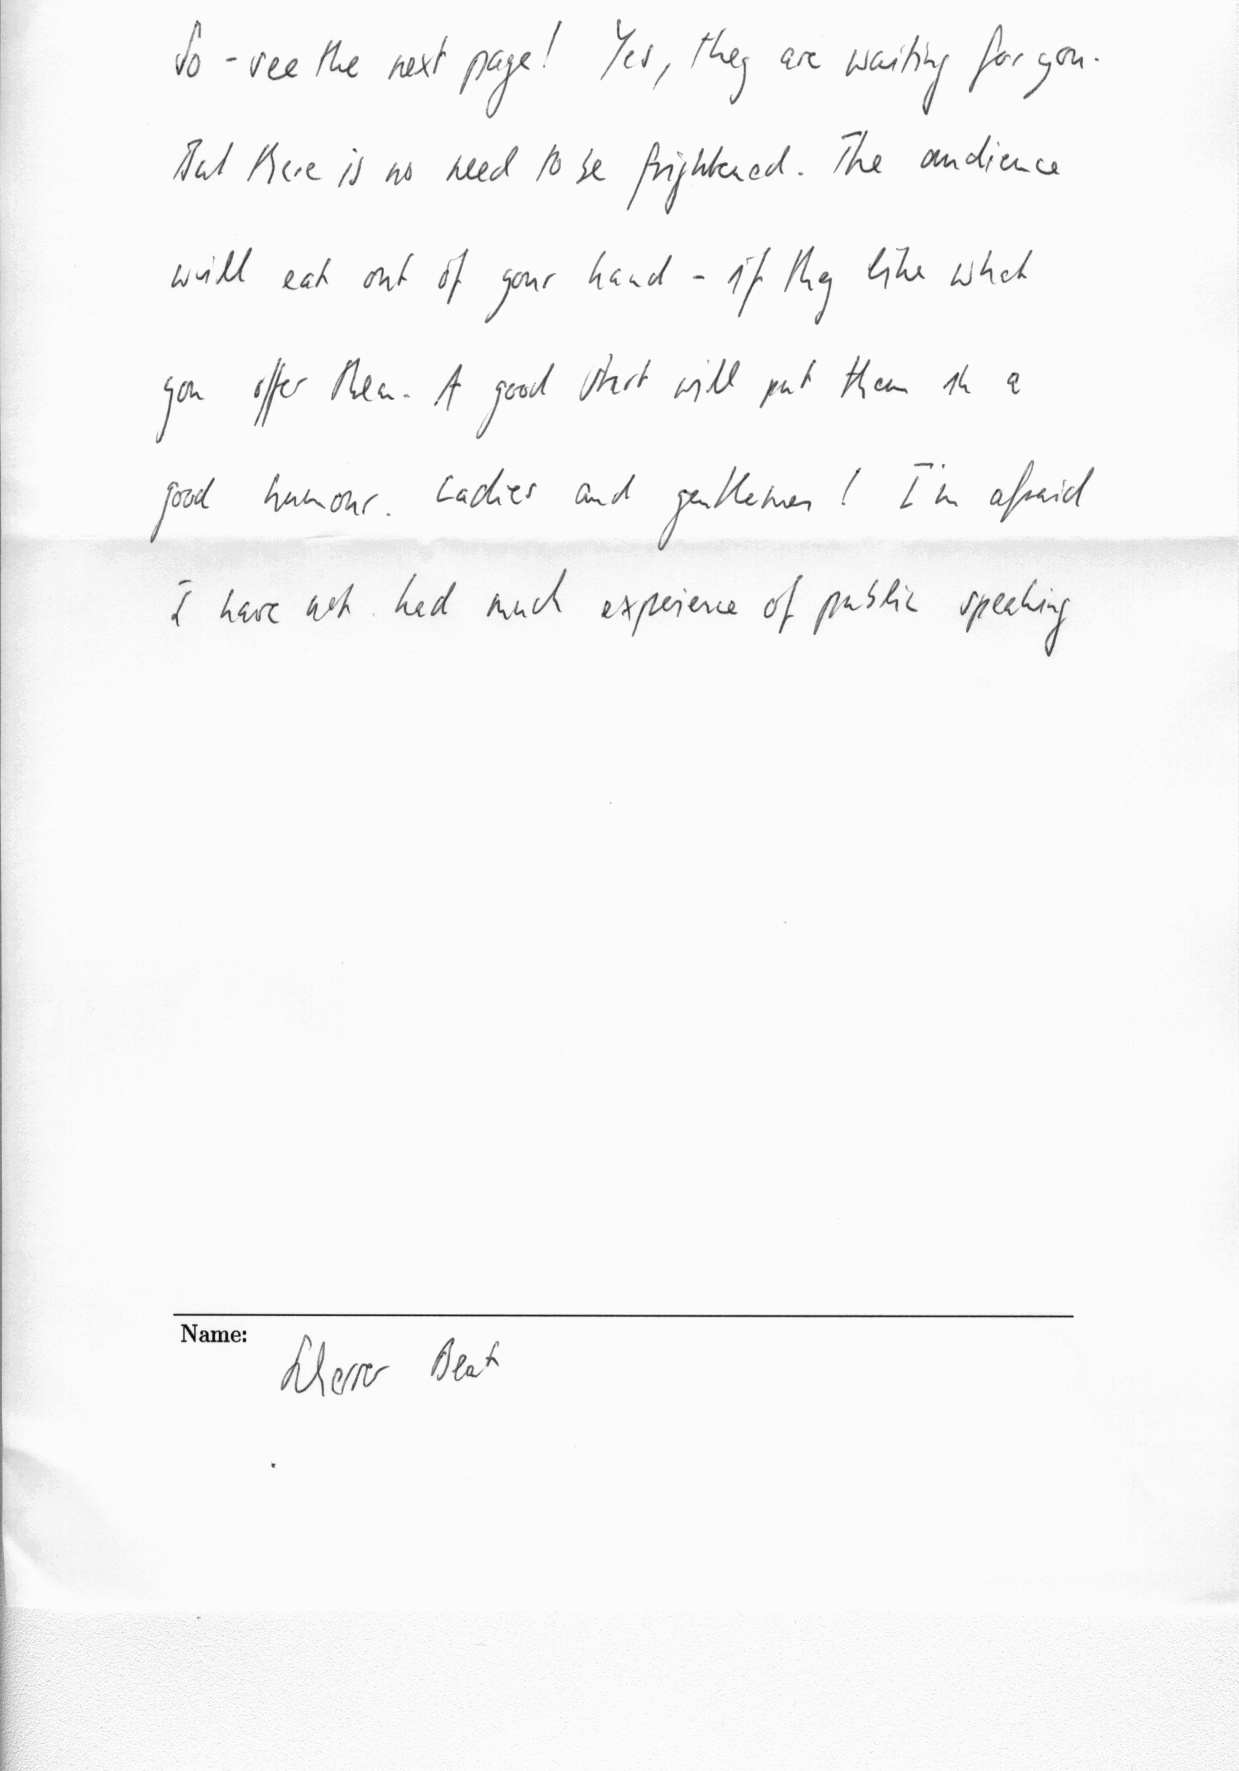 So - see the next page! Yes, they are waiting for you.
But there is no need to be frightened. The audience
will eat out of your hand - if they like what
you offer them. A good start will put them in a
good humour. Ladies and gentlemen! I'm afraid
I have not had much experience of public speaking
Name:
Scherrer Beat